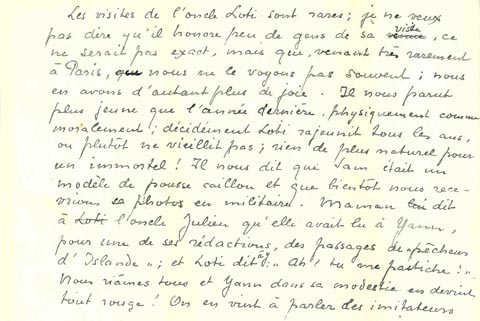 Les visites de l'oncle Loti sont rares ; je ne veux
pas dire qu'il honore peu de gens de sa visite, ce
ne serait pas exact, mais que, venant très rarement
à Paris, que nous ne le voyons pas souvent ; nous
en avons d'autant plus de joie. Il nous parut
plus jeune que l'année dernière, physiquement comme
moralement ; décidément Loti rajeunit tous les ans,
ou plutôt ne vieillit pas ; rien de plus naturel pour
un immortel ! Il nous dit qui Sam était un
modèle de pousse caillou et que bientôt nous rece-
vrions sa photos en militaire. Maman lui dit
à Loti l'oncle Julien qu'elle avait lu à Yann,
pour une de ses rédactions, des passages de "pêcheurs
d'Islande" ; et Loti dit : "Ah ! tu me pastiche !"
Nous rîames tous et Yann dans sa modestie en devint
tout rouge ! On en vint à parler des imitateurs